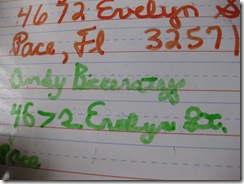 4672 Evelyn S
Pace, Fl 32571
Andy
4672 Evelyn St.
Pace